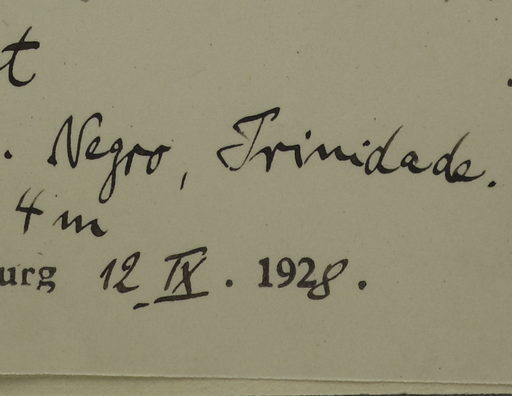 t
. Negro, Trinidade.
4 m
urg 12 IX. 1928.